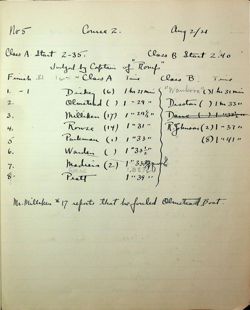 No 5 Course 2. Aug 2/21
Class A Start 2-35. Class B Start 2.40
Judged by Captain of "Romp"
Finish Class A Time Class B. Time
1. -1 Dickey (6) 1 hr 21 min "Wanbora" (3) hr 31 min
2. Olmstead ( ) 1 "29" Preston ( ) 1 hr 33"
3. Milliken (17) 1 "29½" Dame ( )
4. Rowze (14) 1 "31" R Johnson (2) 1 "37"
5. Parkman ( ) 1 "33" (8) 1 "41"
6. Warden ( ) 1 "33½"
7. Madeira (2) 1 "35
8. Pratt 1 "39"
Mr. Milliken #17 reports that he fouled Olmstead Boat.